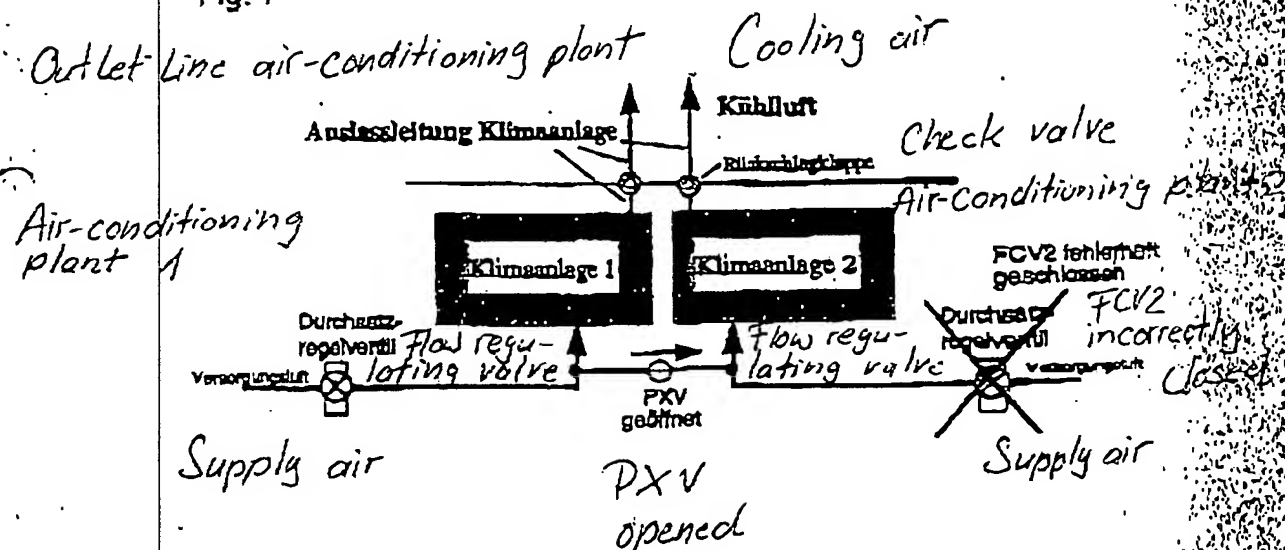 Fig.
Outlet Line air-conditioning plant
Cooling air
Kühlluft
Auslassleitung Klimaanlage
Rückschlagklappe
Check valve
Air-Conditioning
Air-conditioning
plant 1
Klimaanlage 1
Klimaanlage 2
FCV2 fehlerhaft
geschlossen
FCV2
incorrectly
closed
Durchsatz-
regelventil
Flow regu-
lating valve
Flow regu-
lating valve
Durchsatz-
regelventil
Versorgungsluft
Versorgungsluft
PXV
geöffnet
Supply air
PXV
opened
Supply air